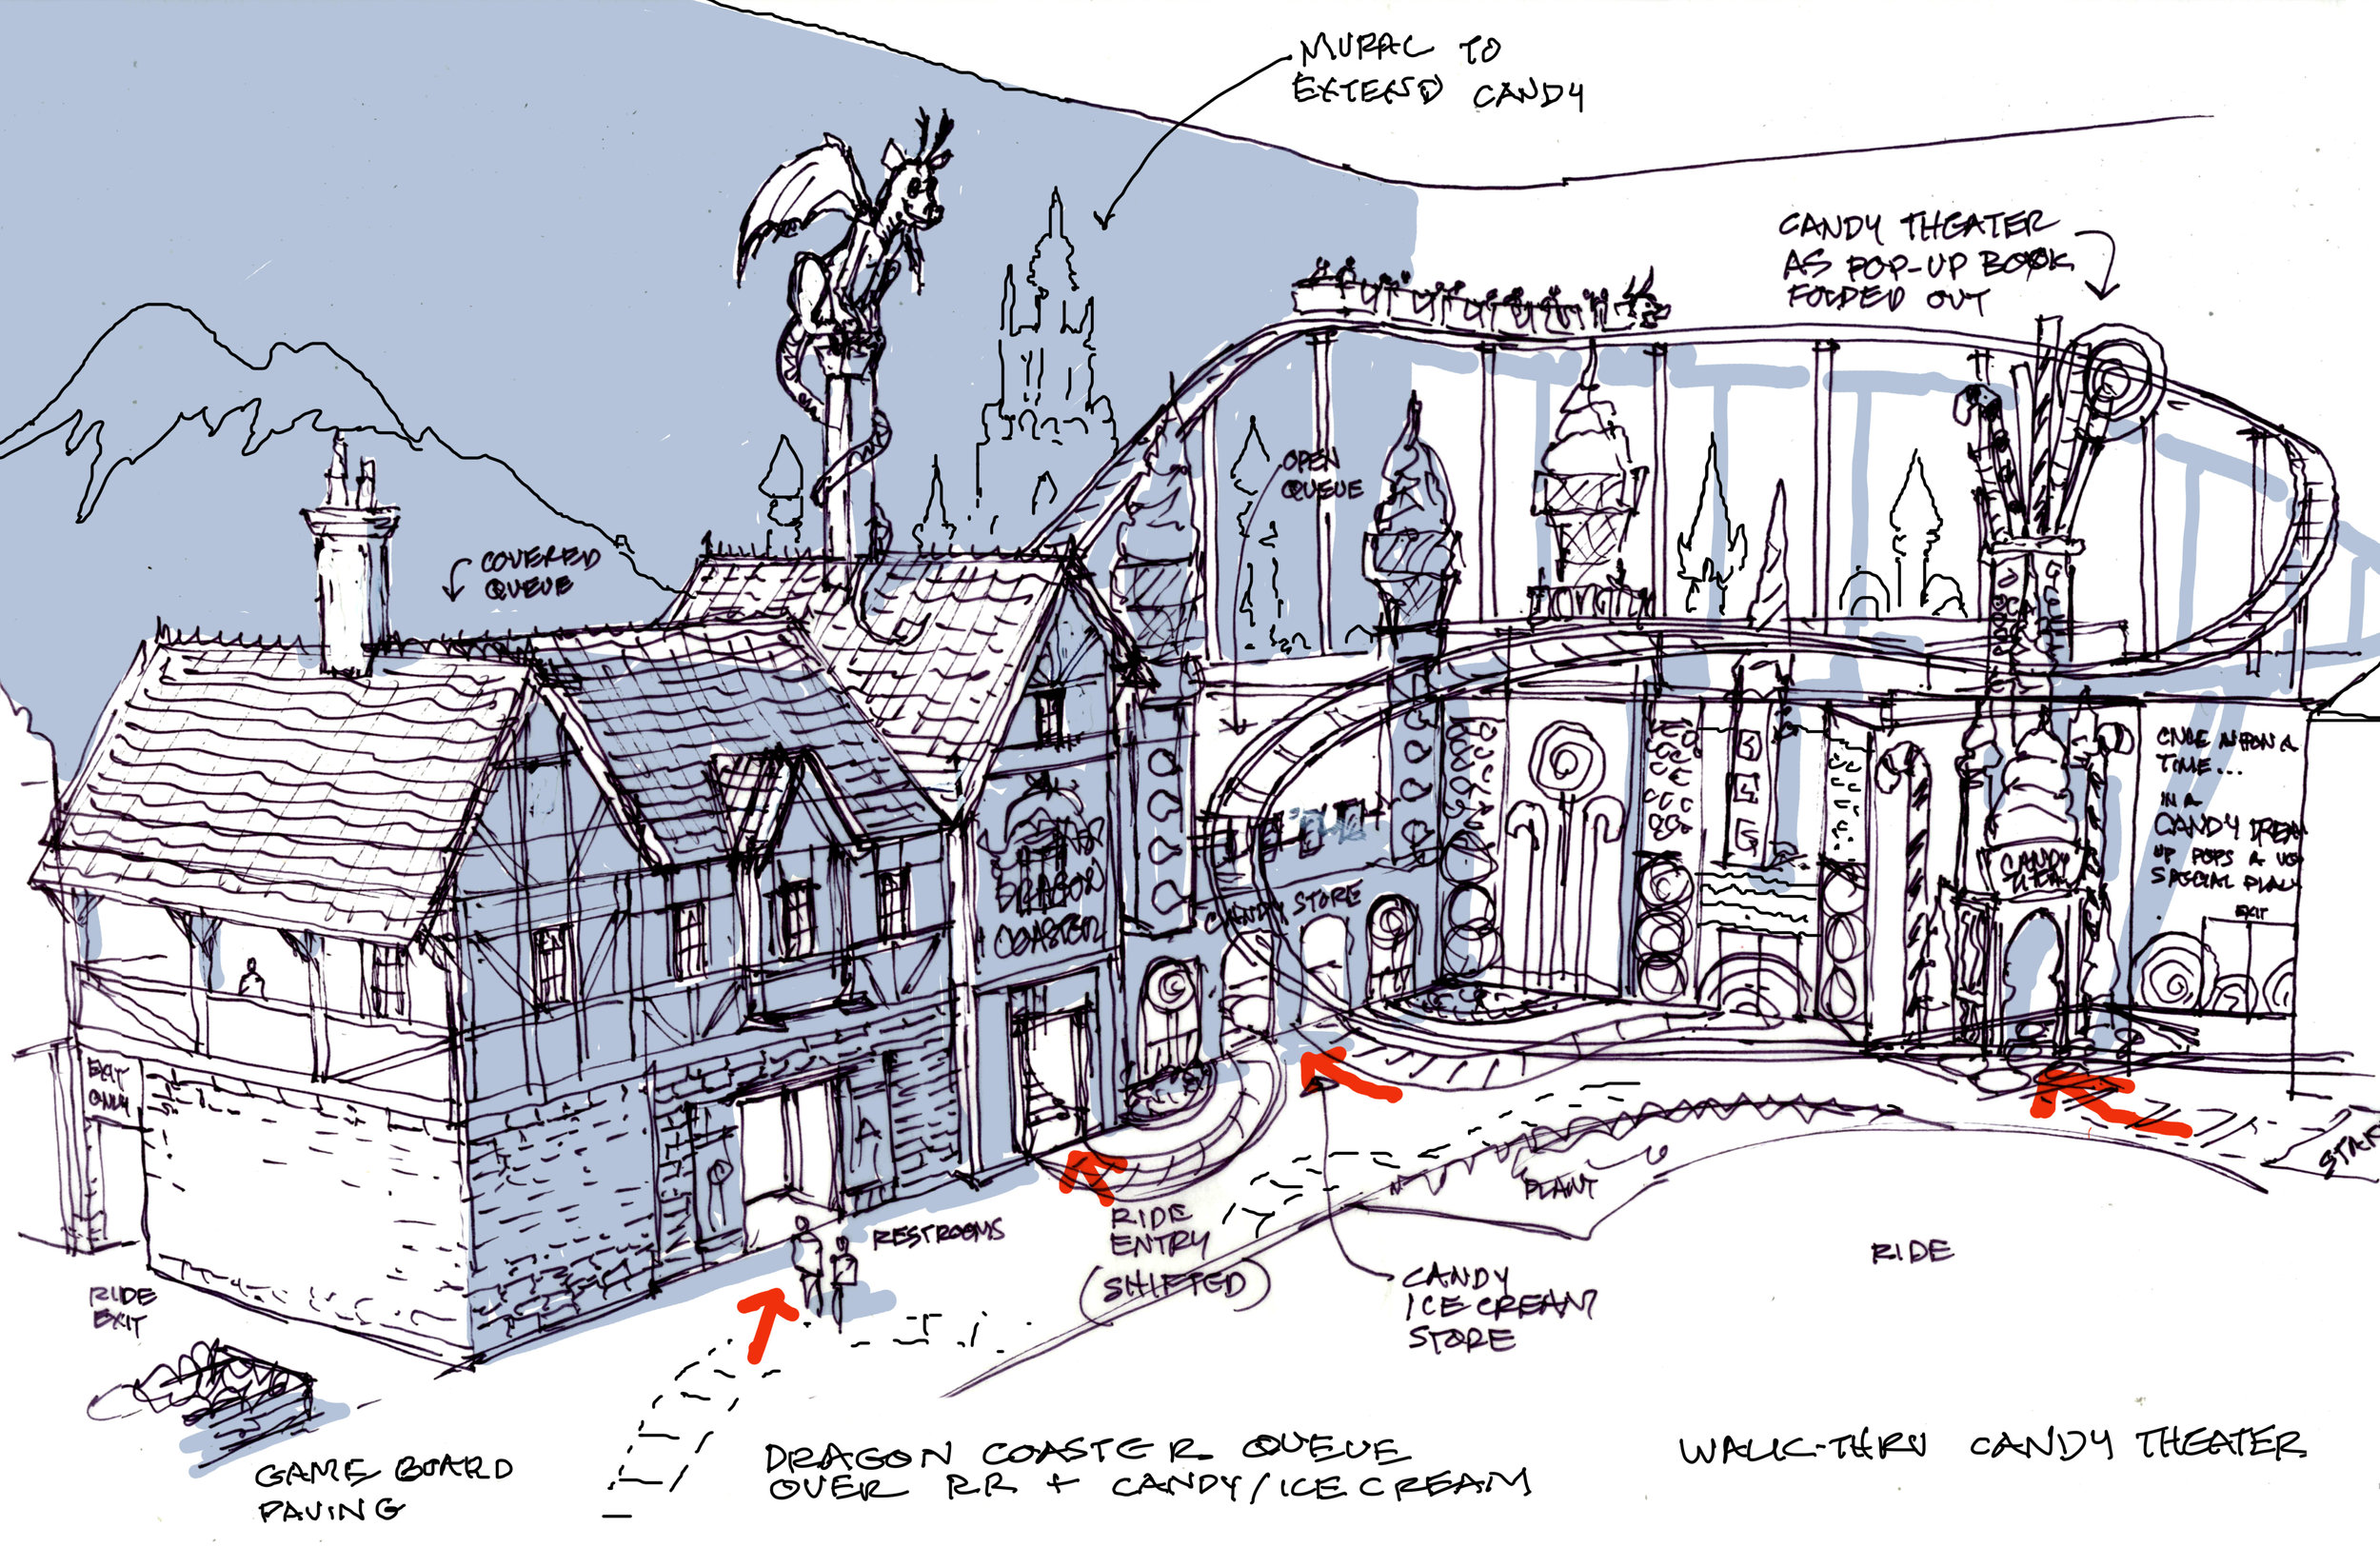 MURAL TO
EXTEND CANDY
CANDY THEATER
AS POP-UP BOOK
FOLDED OUT
OPEN
QUEUE
COVERED
QUEUE
ONCE UPON A
TIME...
IN A
CANDY DREAM
UP POPS A
SPECIAL PLACE
EXIT
DRAGON
COASTER
CANDY STORE
CANDY
EXIT
ONLY
RIDE
EXIT
RESTROOMS
RIDE
ENTRY
(SHIFTED)
PLANT
CANDY
ICE CREAM
STORE
RIDE
GAME BOARD
PAVING
DRAGON COASTER QUEUE
OVER RR + CANDY/ICE CREAM
WALK-THRU CANDY THEATER